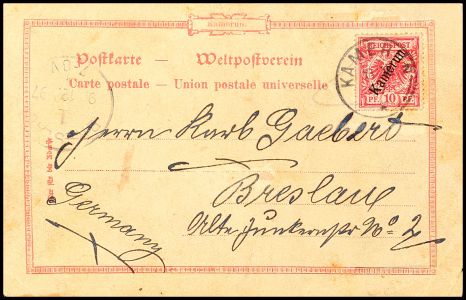 Kamerun.
Postkarte — Weltpostverein
Carte postale — Union postale universelle
REICHSPOST
Kamerun
10
PF PF
KAMERUN
Herrn Karl Gaebert
Breslau
Alte Junkernstr No 2
Germany